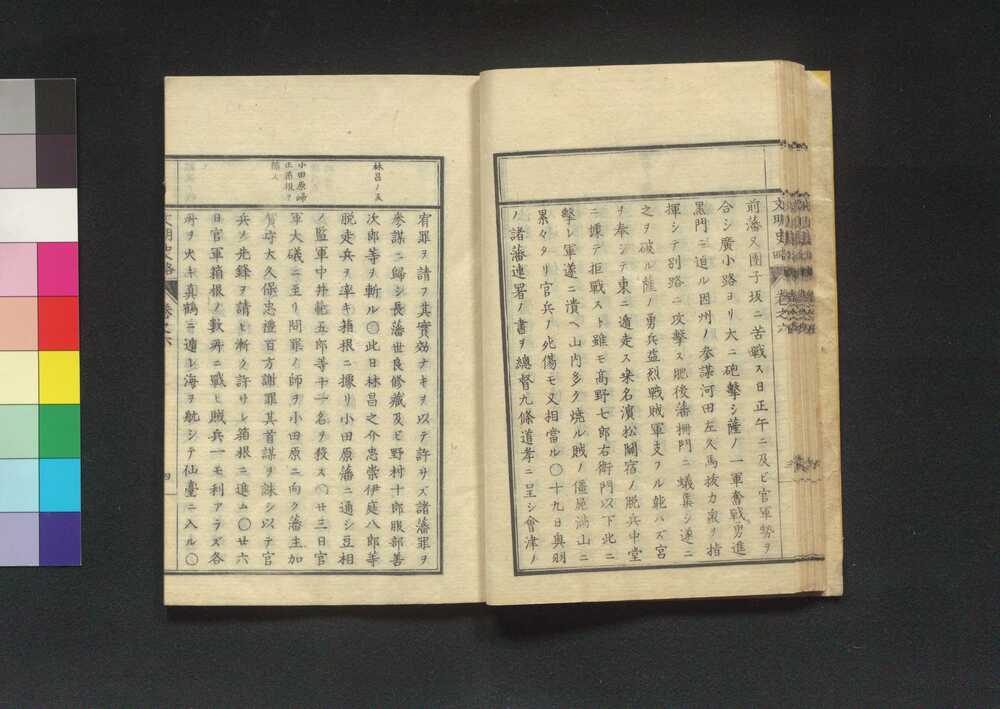 文明史略 卷之六
前藩又團子坂ニ苦戰ス日正午ニ及ビ官軍勢ヲ
合シ廣小路ヨリ大ニ砲擊シ薩ノ一軍奮戰勇進
黑門ニ迫ル因州ノ參謀河田左久馬拔カ衆ヲ指
揮シテ別路ニ攻擊ス肥後藩柵門ニ蟻集シ遂ニ
之ヲ破ル薩ノ勇兵益烈戰賊軍支フル能ハズ宮
ヲ奉シテ東ニ遁走ス桑名濱松關宿ノ脱兵中堂
ニ據テ拒戰スト雖モ高野七郎右衛門以下此ニ
擊レ軍遂ニ潰ヘ山内多ク燒ル賊ノ僵屍滿山ニ
累々タリ官兵ノ死傷モ又相當ル〇十九日奥羽
ノ諸藩連署ノ書ヲ總督九條道孝ニ呈シ會津ノ
宥罪ヲ請フ其實効ナキヲ以テ許サズ諸藩罪ヲ
參謀ニ歸シ長藩世良修藏及ビ野村十郎服部善
次郎等ヲ斬ル〇此日林昌之介忠崇伊庭八郎等
脱走兵ヲ率キ箱根ニ據リ小田原藩ニ通シ豆相
ノ監軍中井範五郎等十一名ヲ殺ス〇廿三日官
軍大礒ニ至リ問罪ノ師ヲ小田原ニ向ク藩主加
賀守大久保忠禮百方謝罪其首謀ヲ誅シ以テ官
兵ノ先鋒ヲ請ヒ漸ク許サレ箱根ニ進ム〇廿六
日官軍箱根ノ數所ニ戰ヒ賊兵一モ利アラズ各
所ヲ火キ真鶴ニ遁レ海ヲ航シテ仙臺ニ入ル〇
小田原歸
正箱根ヲ
文明史略 卷之六
四